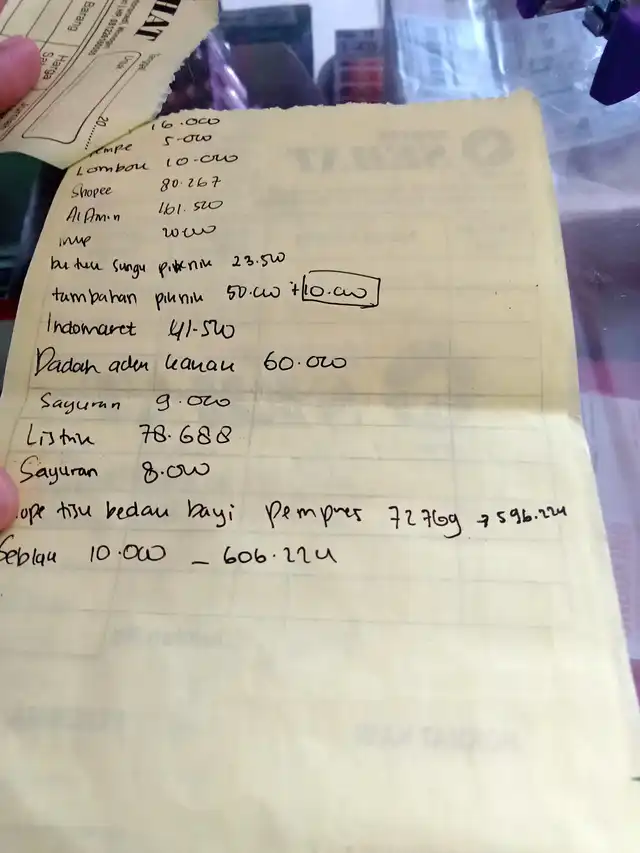 HAT
Barang
Harga
20
16.000
empe 5.000
Lombok 10.000
Shopee 80.267
Al Amin 161.500
20000
23.500
tambahan piknik 50.000 + 10.000
Indomaret 41.500
Dadah aden kanan 60.000
Sayuran 9.000
Listrik 78.688
Sayuran 8.000
ope tisu bedak bayi pempres 72769 → 596.224
Seblak 10.000 - 606.224